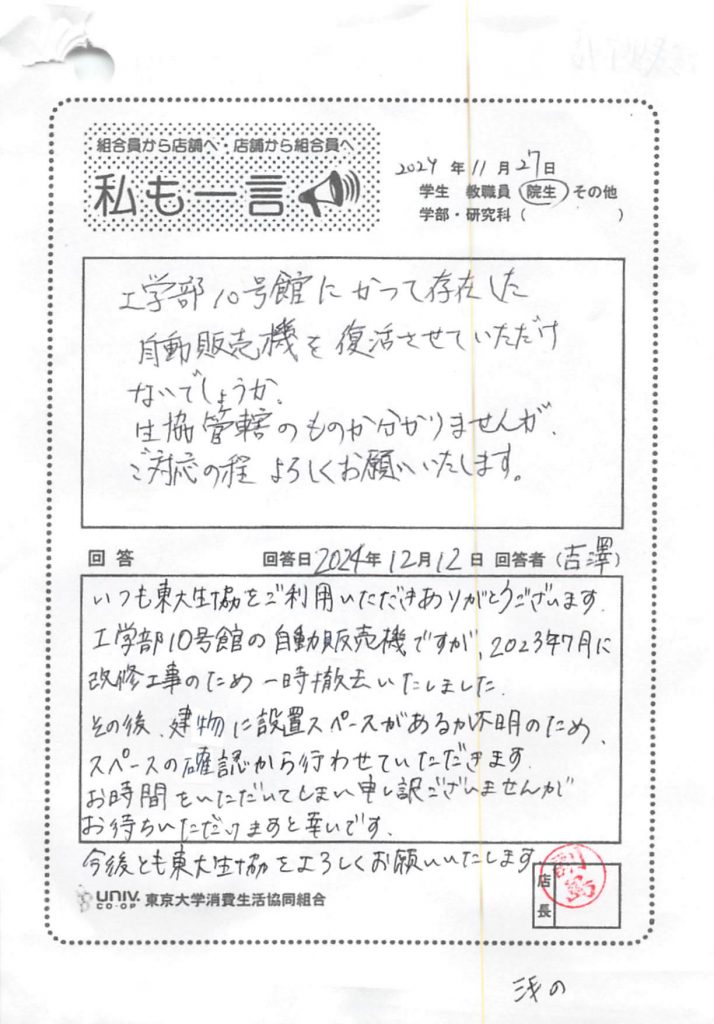 組合員から店舗へ・店舗から組合員へ
私も一言
2024年11月27日
学生 教職員 院生 その他
学部・研究科（ ）
工学部10号館にかつて存在した
自動販売機を復活させていただけ
ないでしょうか。
生協管轄のものか分かりませんが、
ご対応の程よろしくお願いいたします。
回答 回答日2024年12月12日 回答者（吉澤）
いつも東大生協をご利用いただきありがとうございます。
工学部10号館の自動販売機ですが、2023年7月に
改修工事のため一時撤去いたしました。
その後、建物に設置スペースがあるか不明のため、
スペースの確認から行わせていただきます。
お時間をいただいてしまい申し訳ございませんが
お待ちいただけますと幸いです。
今後とも東大生協をよろしくお願いいたします
店長
UNIV. CO-OP 東京大学消費生活協同組合